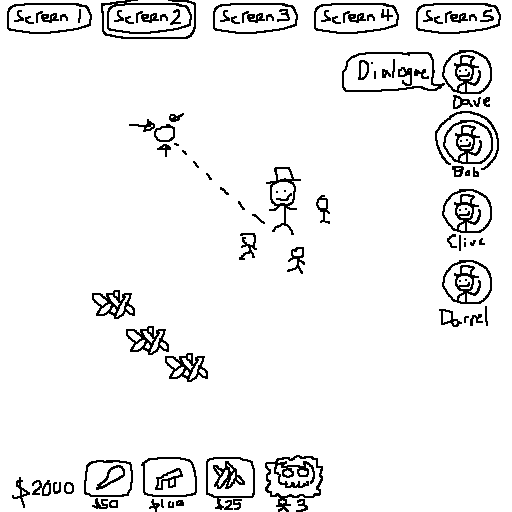 Screen 1
Screen 2
Screen 3
Screen 4
Screen 5
Dialogue
Dave
Bob
Clive
Darrel
$2000
$50
$100
$25
3